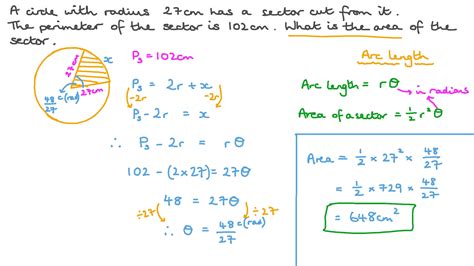 A circle with radius 27cm has a sector cut from it.
The perimeter of the sector is 102cm. What is the area of the
sector.
27cm
x
27cm
48/27 c (rad)
P₃ = 102cm
P₃ = 2r + x
(-2r) (-2r)
P₃ - 2r = x
∴ P₃ - 2r = rθ
102 - (2×27) = 27θ
48 = 27θ
÷27 ÷27
∴ θ = 48/27 c (rad)
Arc length
Arc length = rθ
in radians
Area of a sector = 1/2 r²θ
Area = 1/2 × 27² × 48/27
= 1/2 × 729 × 48/27
= 648cm²